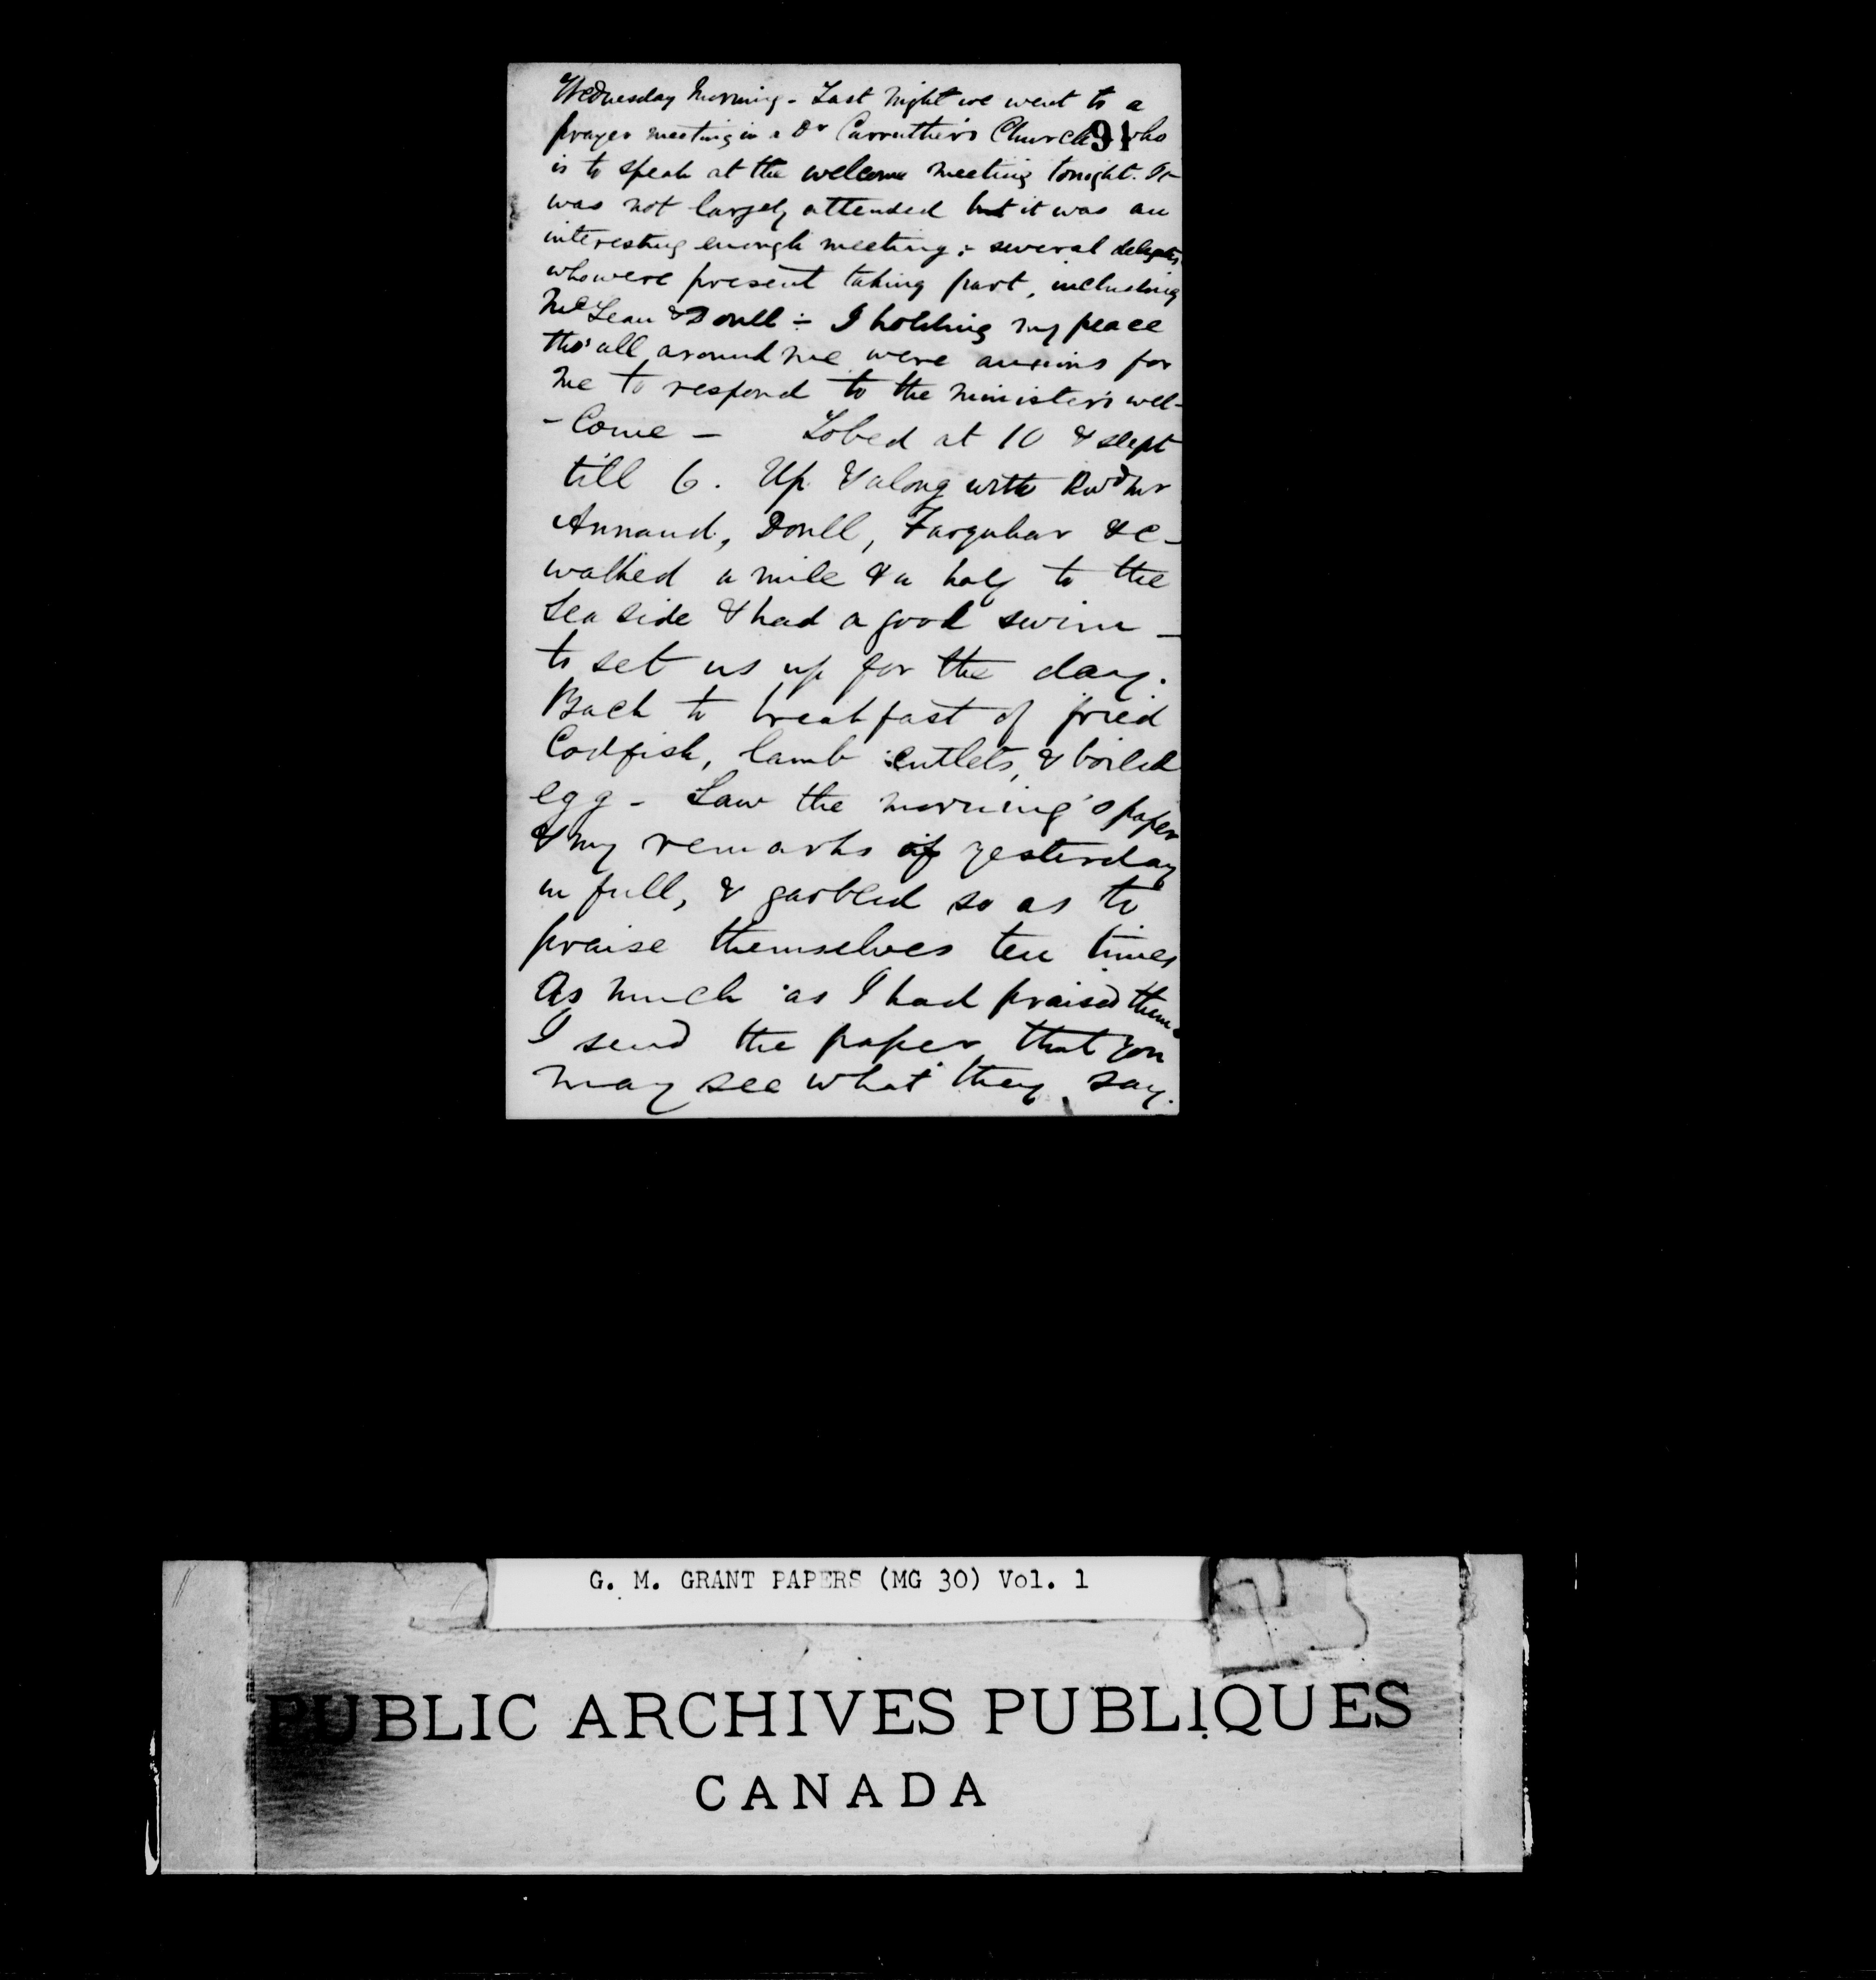 Wednesday Morning - Last Night we went to a
prayer meeting in a Dr Carruther's Church - who
91
is to speak at the welcome meeting tonight. It
was not largely attended but it was an
interesting enough meeting :- several delegates
who were present taking part, including
McLean & Doull :- I holding my peace
tho' all around me were anxious for
me to respond to the minister's wel-
- Come - To bed at 10 & slept
till 6. Up & along with Revd Mr
Annand, Doull, Farquhar &c -
walked a mile & a half to the
Sea side & had a good swim -
to set us up for the day.
Back to breakfast of fried
Codfish, lamb cutlets, & boiled
egg - Saw the morning's paper
& my remarks of yesterday
in full, & garbled so as to
praise themselves ten times
As much as I had praised them.
I send the paper that you
may see what they say.
G. M. GRANT PAPERS (MG 30) Vol. 1
PUBLIC ARCHIVES PUBLIQUES
CANADA